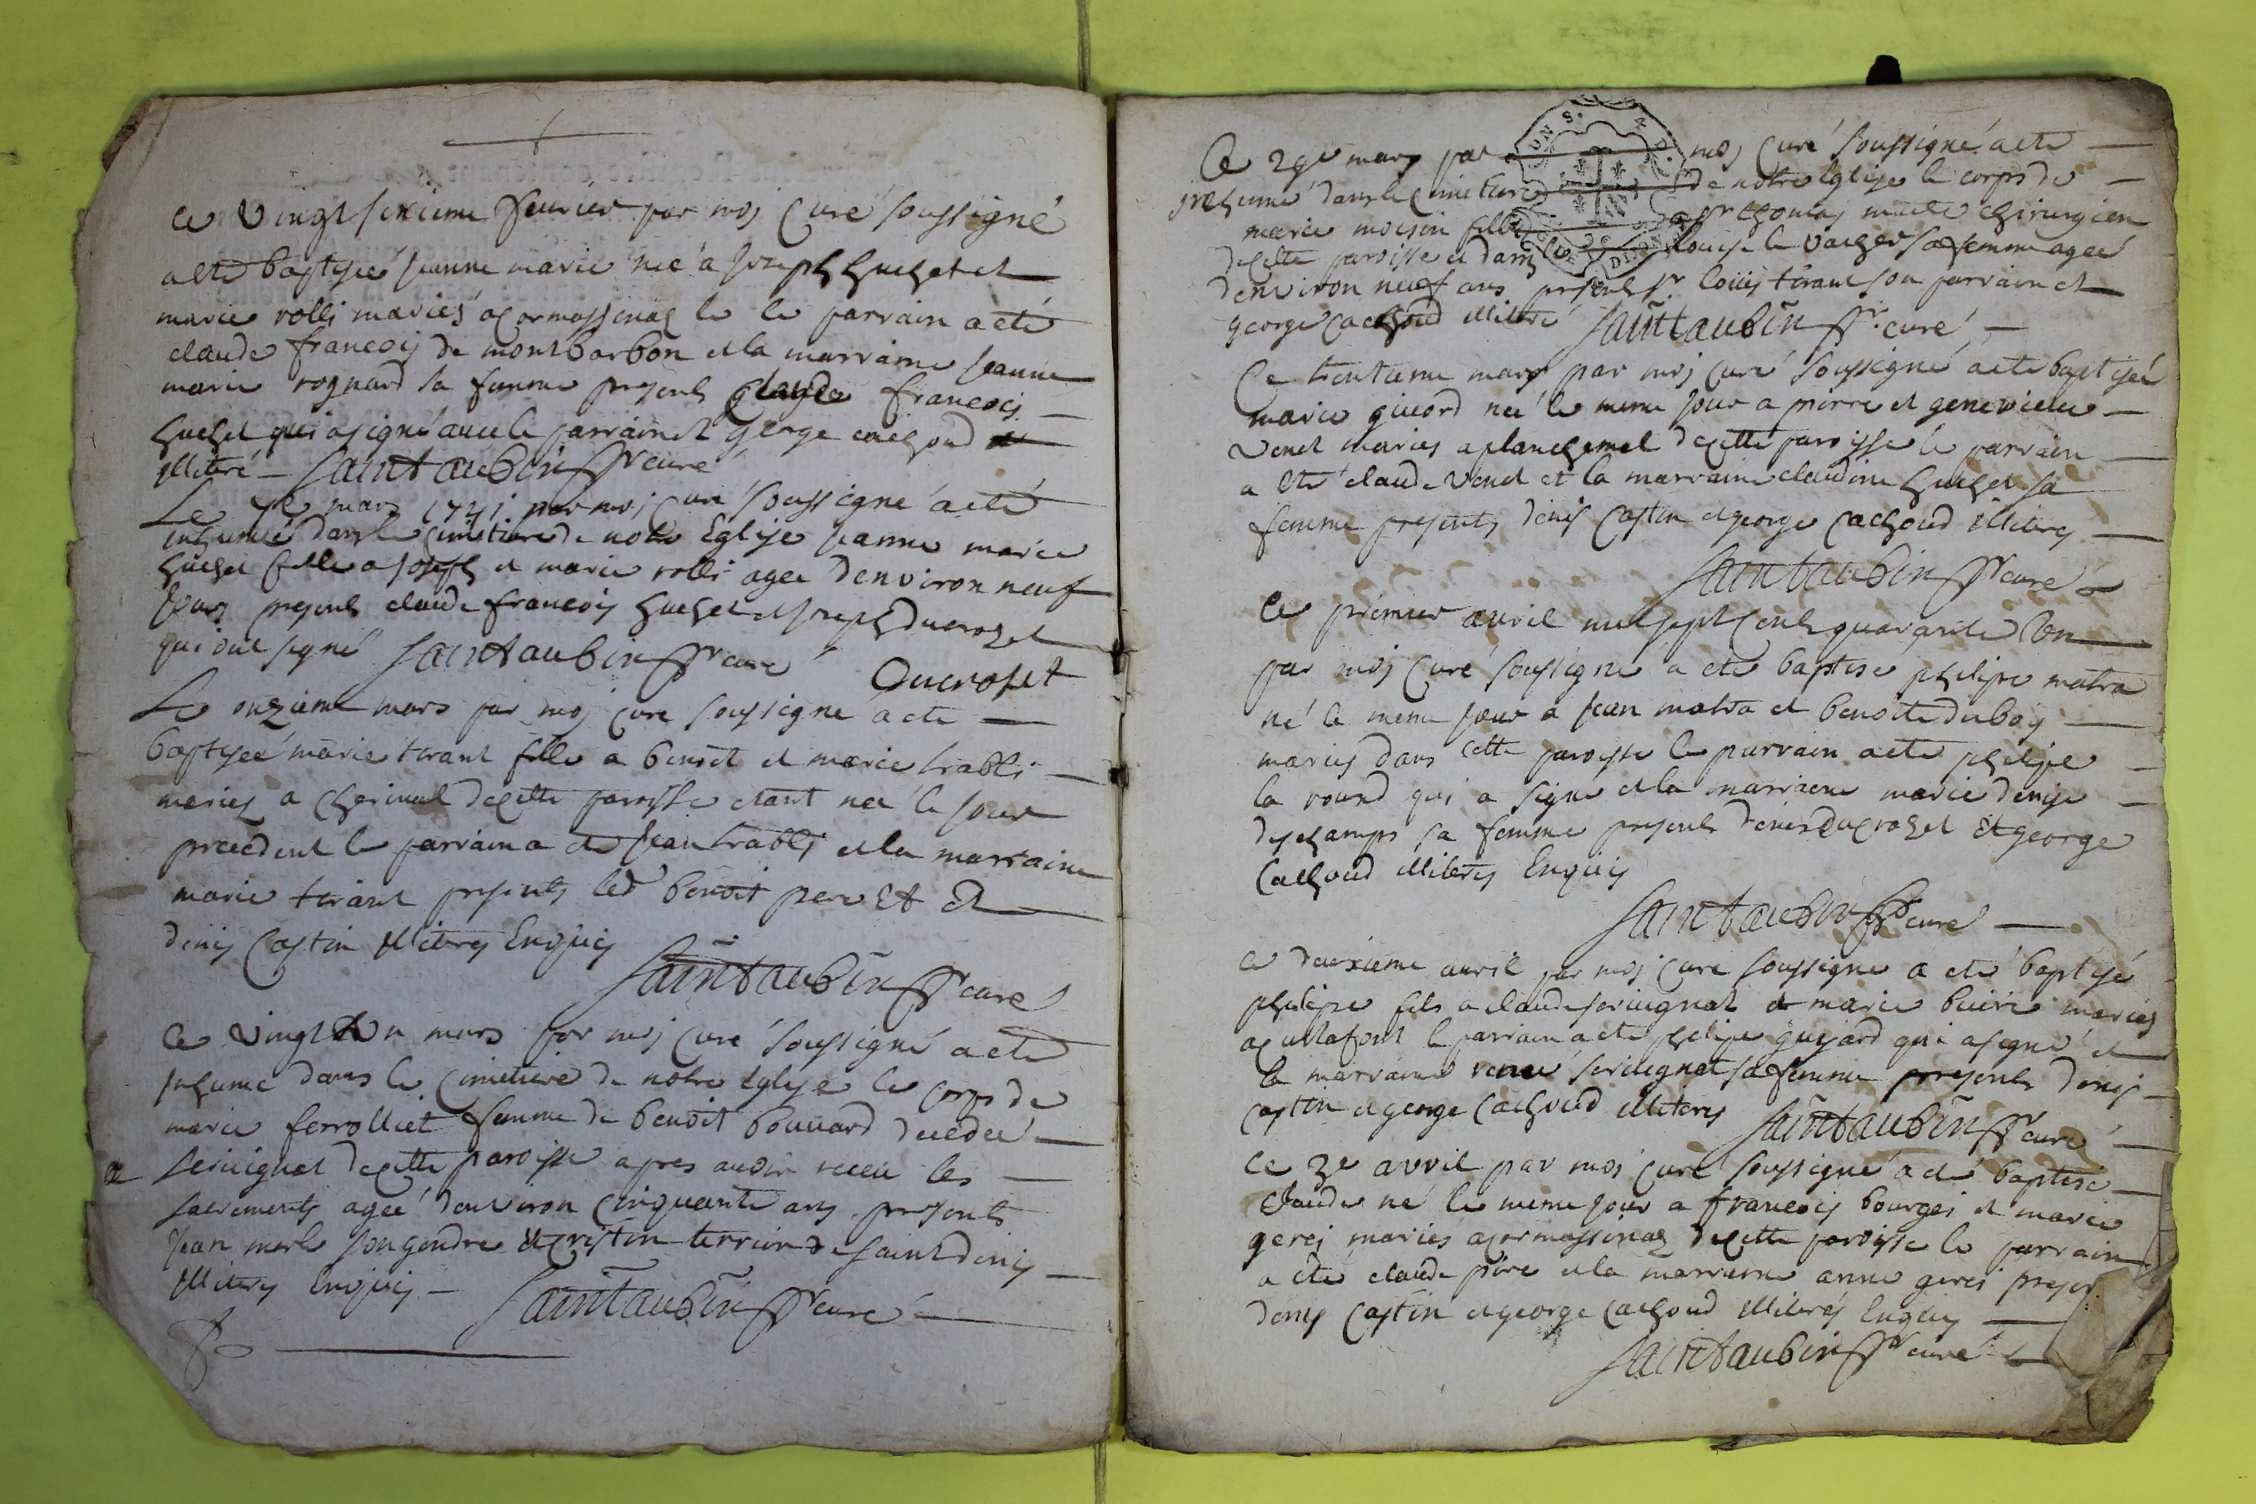 ce vingt sixieme feuvier par moj Curé soussigné
a eté baptisée jeanne marie née a joseph huchet et
marie rolli mariés a cormassinas le le parrain a eté
claude francois de montbarbon et la marraine jeanne
marie rognard sa femme presents claude francois
huchet qui a signé avec le parrain et george cachoud
illiteré Saintaubin curé
Le 7e mars 1741 par moj curé soussigné a eté
inhumée dans le cimetiere de notre Eglise jeanne marie
huchet fille a joseph et marie rolli agee denviron neuf
jours presents claude francois huchet et joseph ducroset
qui ont signé Saintaubin curé Ducroset
Le onzieme mars par moj curé soussigné a eté
baptisée marie tirant fille a benoit et marie trabli
mariez a cherinal de cette paroisse etant née le jour
precedent le parrain a eté jean trabli et la marraine
marie tirant presents led benoit pere Et et
denis Castin illiteres Enquis
Saintaubin curé
ce vingt Un mars par moj curé soussigné a eté
inhumé dans le cimetiere de notre Eglise le corps de
marie ferrolliet femme de benoit bouvard decedée
a seruignat de cette paroisse apres avoir receu les
sacrements agée denviron cinquante ans presents
jean merle son gendre et cristin terrier de saint denis
illiteres Enquis Saintaubin curé
Ce 29e mars par moj Curé soussigné a eté
inhumé dans le cimetiere de notre Eglise le corps de
marie moisin fille a sr thomas chirurgien
de cette paroisse et dame louise le vacher sa femme agée
denviron neuf ans presents sr louis tirant son parrain et
george cachoud illiteré Saintaubin curé
Ce trentieme mars par moj curé soussigné a eté baptisée
marie guiord née le meme jour a pierre et genevieve
venet mariés a planchemel de cette paroisse le parrain
a eté claude venet et la marraine claudine huchet sa
femme presents denis Castin et george Cachoud illiteres
Saintaubin curé
Ce premier avril mil sept cents quarante Un
par moj curé soussigné a eté baptisé philipe matra
né le meme jour a jean matra et benoite dubois
mariés dans cette paroisse le parrain a eté philipe
la round qui a signé et la marraine marie denise
deschamps sa femme presents denis ducroset Et george
Cachoud illiteres Enquis
Saintaubin curé
ce deuxieme avril par moj curé soussigné a eté baptisé
philipe fils a claude seruignat et marie mariés
a cuttafont le parrain a eté philipe guijard qui a signé et
la marraine seruignat sa femme presents denis
castin et george cachoud illiteres Saintaubin curé
ce 3e avril par moj curé soussigné a eté baptisé
claude né le meme jour a francois bourges et marie
gerej mariés a cormassinas de cette paroisse le parrain
a eté claude pere et la marraine anne gerej
denis Castin et george cachoud illiterés Enquis
Saintaubin curé